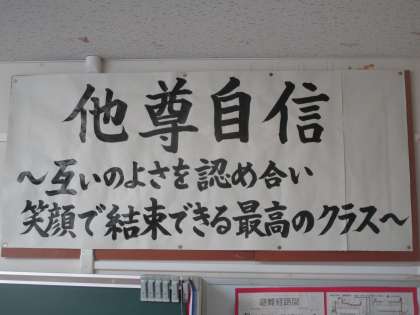 他尊自信
～互いのよさを認め合い
笑顔で結束できる最高のクラス～
避難経路図